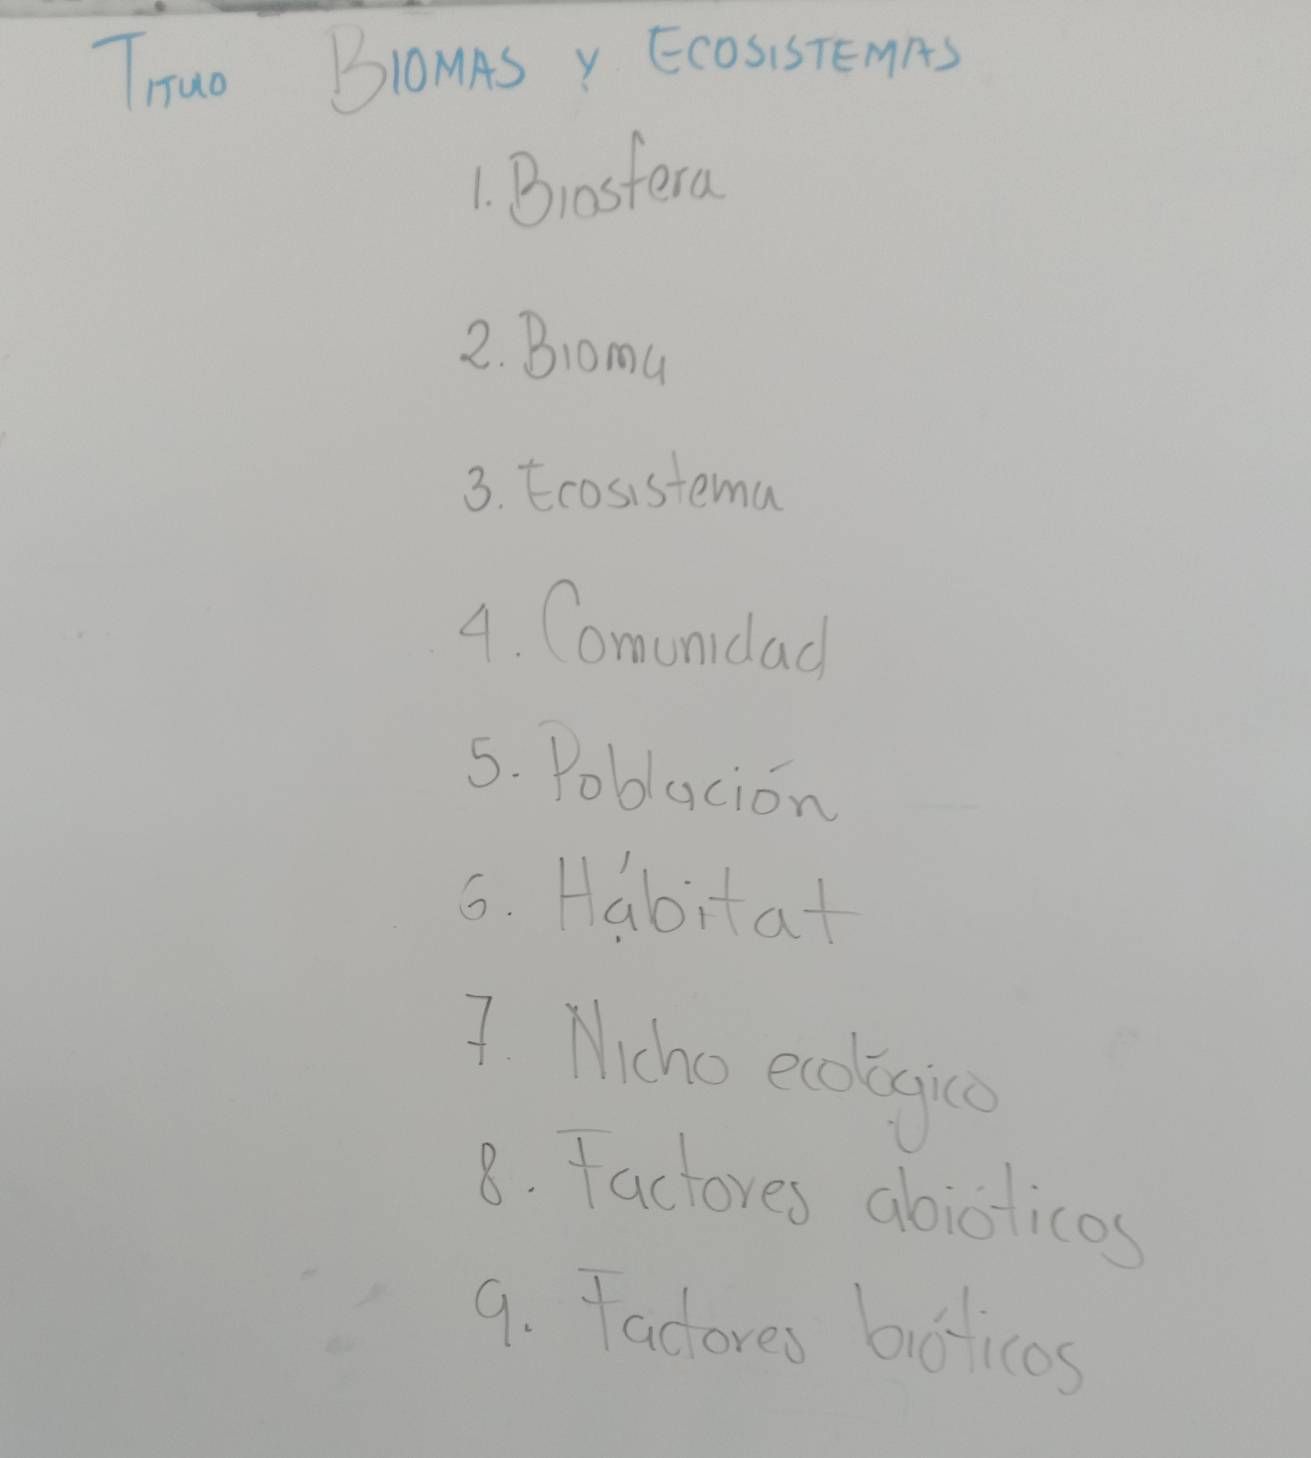 TITULO BIOMAS Y ECOSISTEMAS
1. Biosfera
2. Bioma
3. Ecosistema
4. Comunidad
5. Población
6. Hábitat
7. Nicho ecológico
8. Factores abióticos
9. Factores bióticos